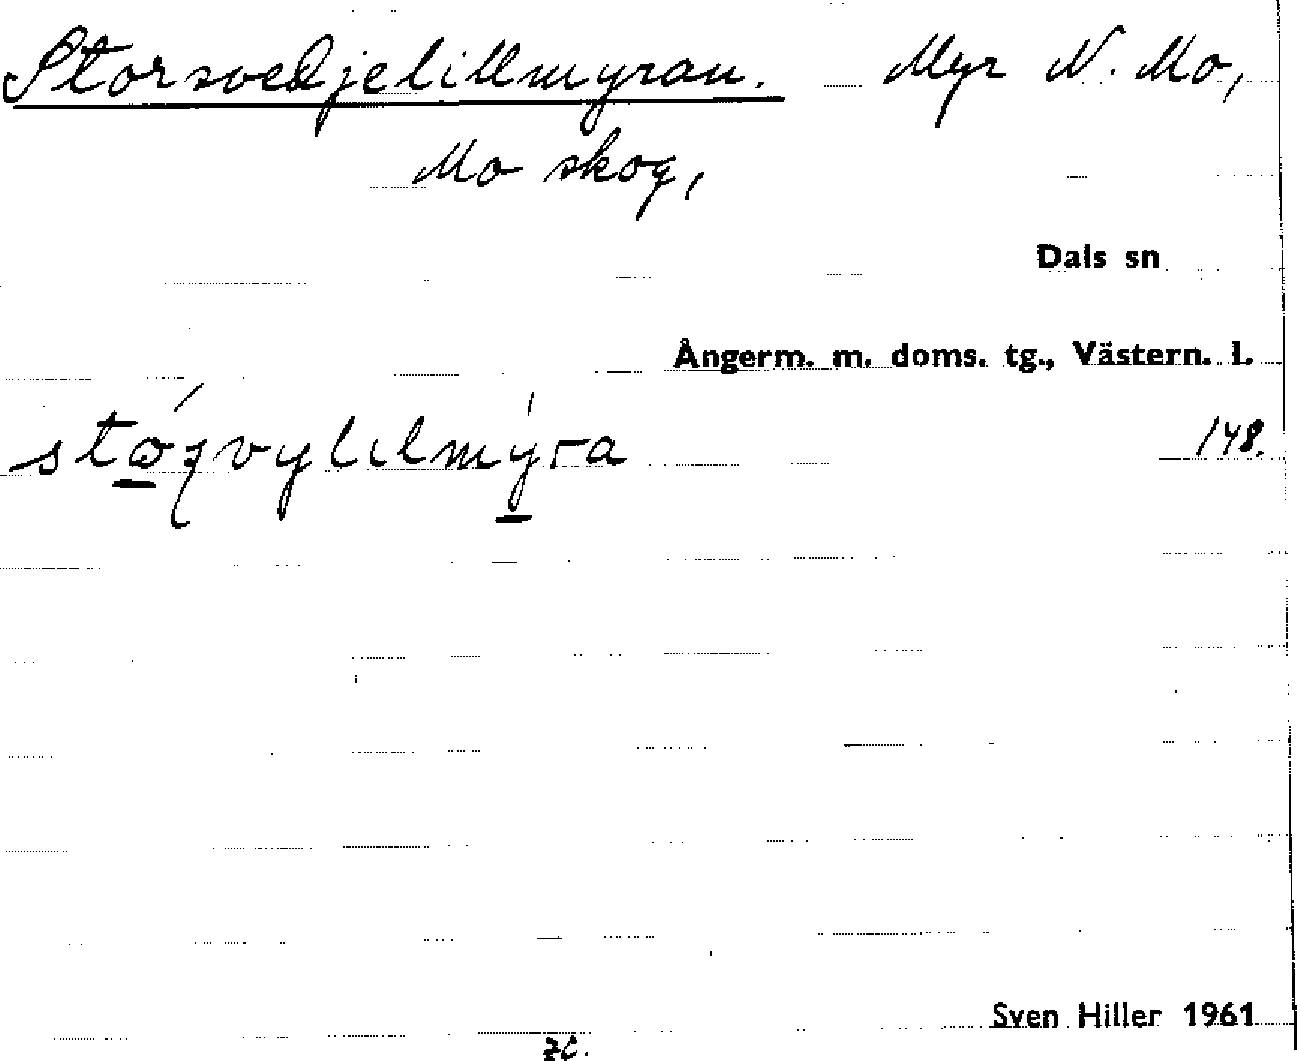 Storsvedjelillmyran. Myr N. Mo,
Mo skog,
Dals sn
Ångerm. m. doms. tg., Västern. l.
148.
Sven Hiller 1961